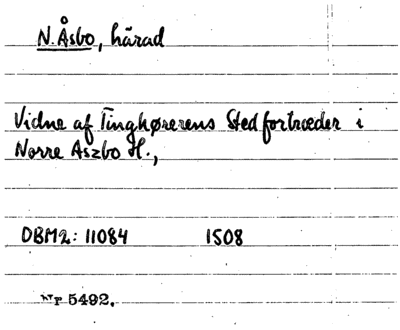 N. Åsbo, härad
Vidne af Tinghørerens Stedfortræder i
Nørre Aszbo H.,
DBM2: 11084 1508
Nr 5492.